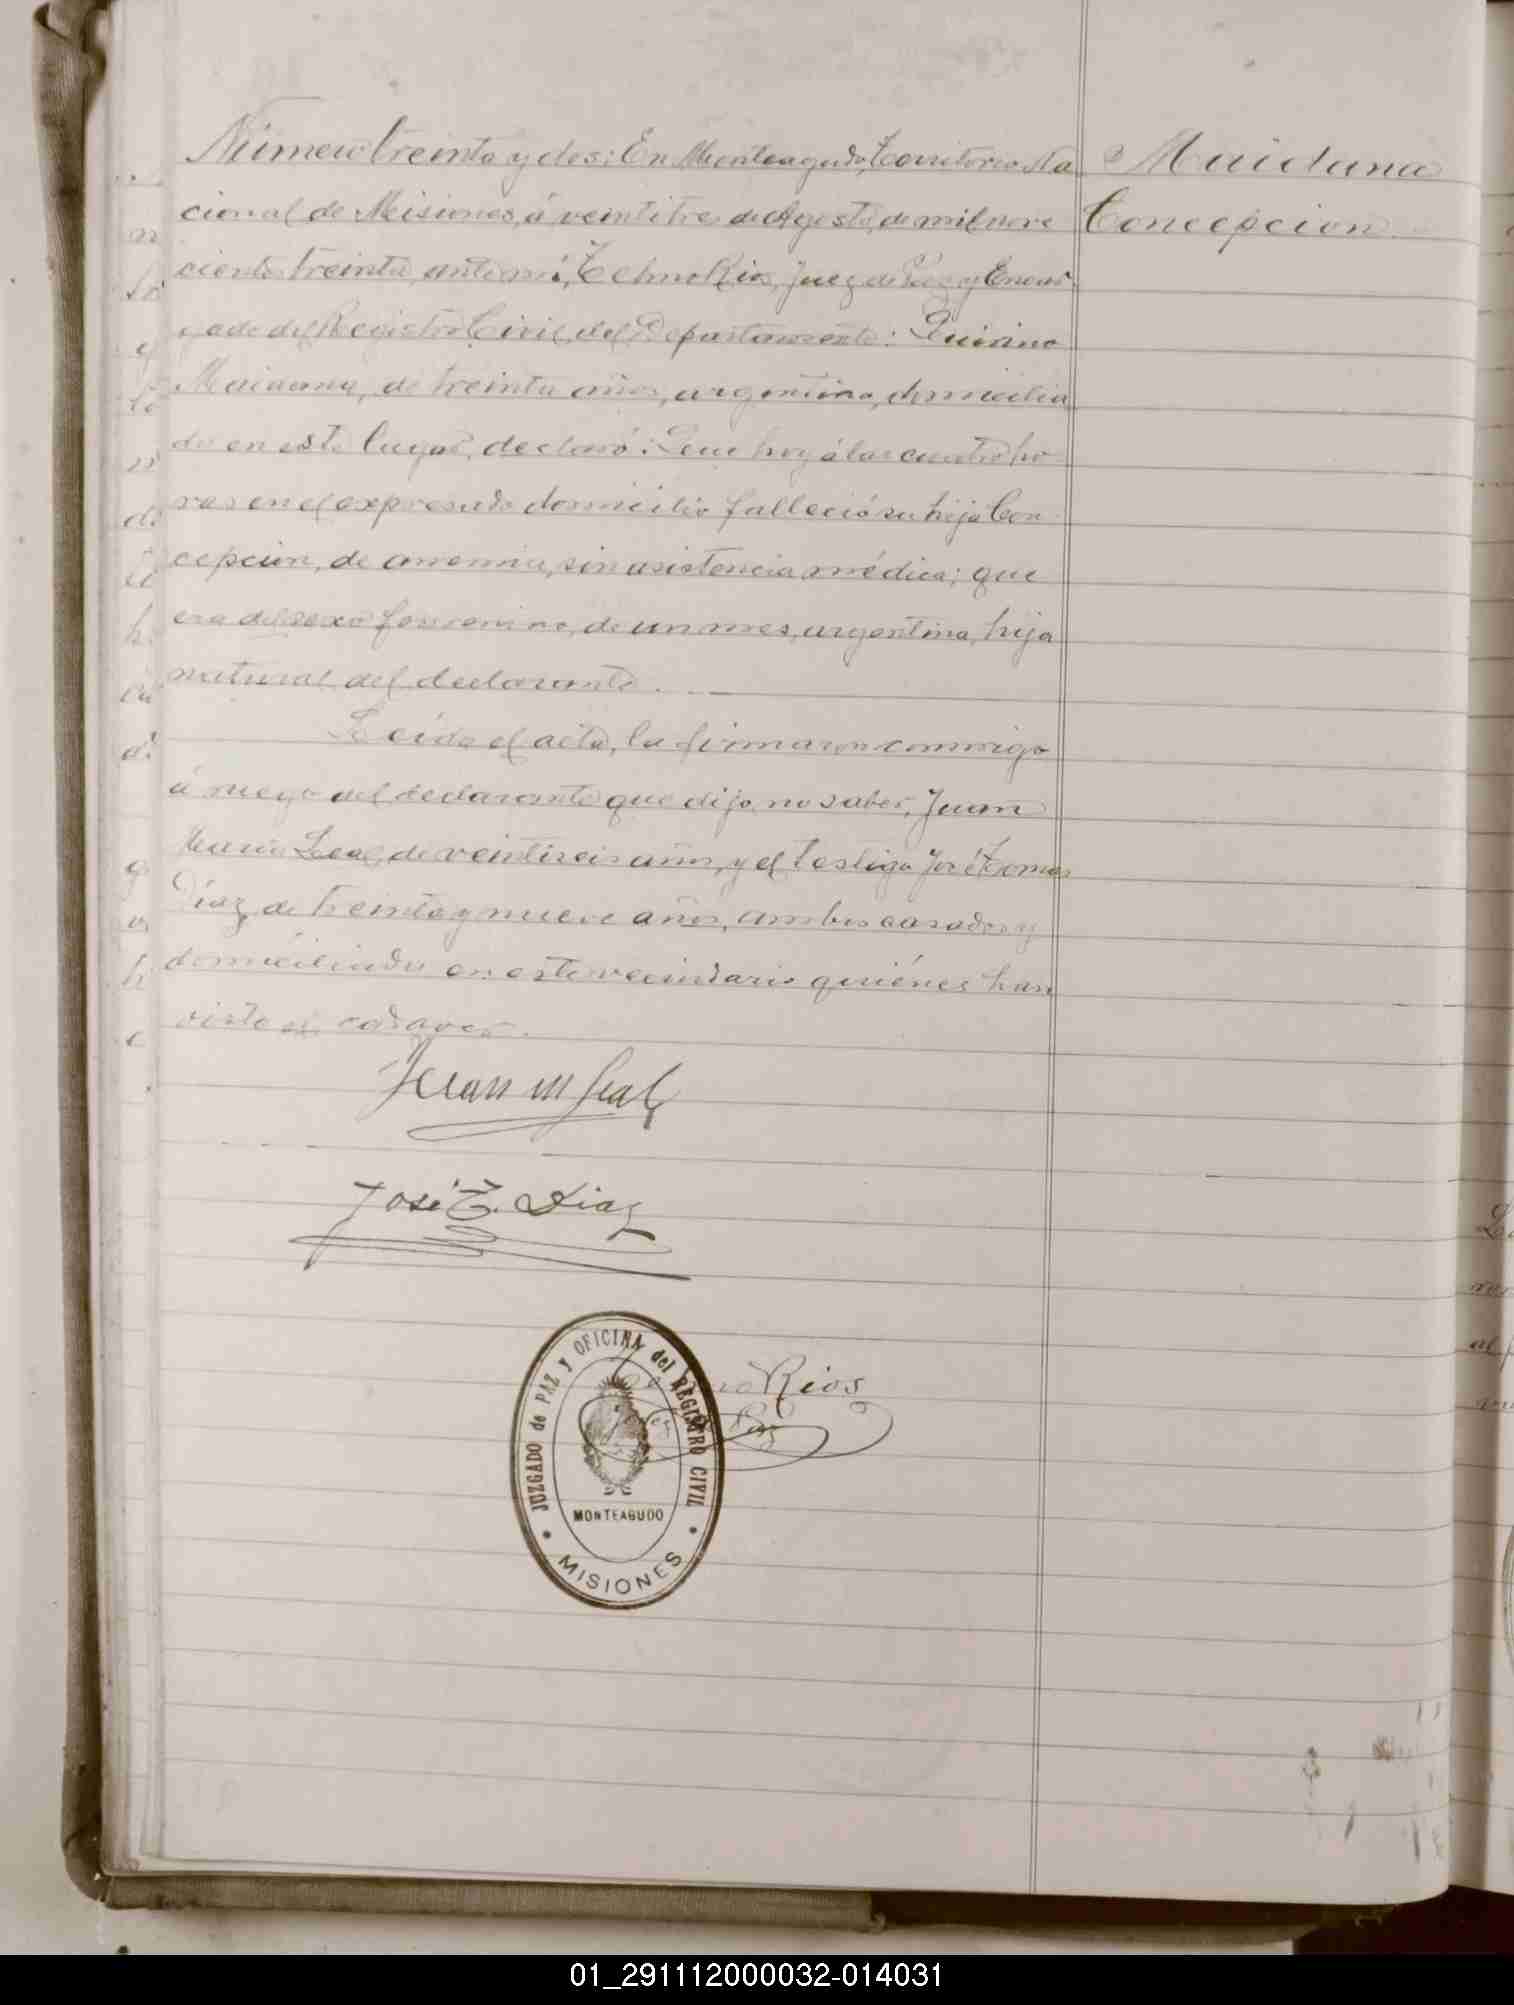 Número treinta y dos: En Monteagudo, Territorio Na
cional de Misiones, á veintitres de Agosto de mil nove
cientos treinta, ante mí, Telmo Rios, Juez de Paz y Encar
gado del Registro Civil del Departamento: Quirino
Maidana, de treinta años, argentino, domicilia
do en este lugar, declaró: Que hoy á las cuatro ho
ras en el expresado domicilio falleció su hija Con
cepcion, de anemia, sin asistencia médica; que
era del sexo femenino, de un mes, argentina, hija
natural del declarante.
Leída el acta, la firmaron conmigo
á ruego del declarante que dijo no saber, Juan
María Leal, de veintiseis años, y el testigo José Tomas
Díaz, de treinta y nueve años, ambos casados y
domiciliados en este vecindario quiénes han
visto el cadaver.
Maidana
Concepcion
Juan M Leal
José T. Diaz
Telmo Rios
Juez de Paz
JUZGADO de PAZ y OFICINA del REGISTRO CIVIL
MONTEAGUDO
MISIONES
01_291112000032-014031